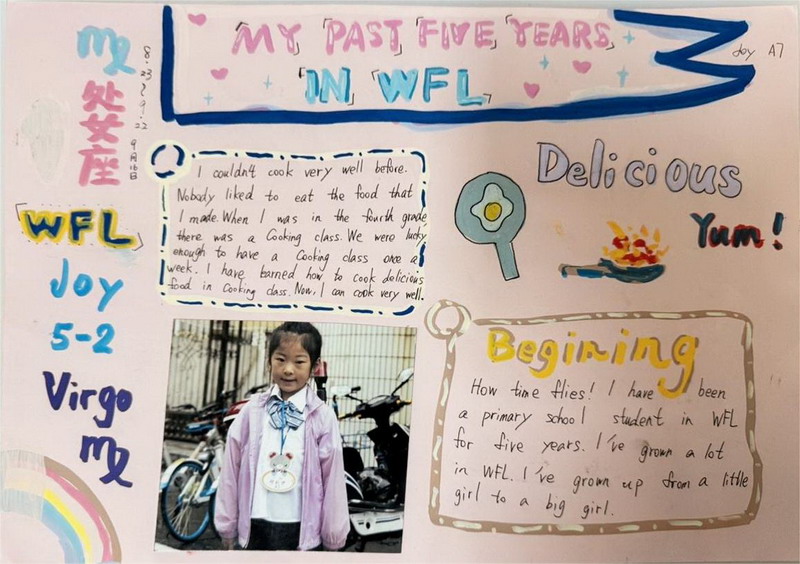 MY PAST FIVE YEARS
IN WFL
Joy A7
♍
8.23~9.22
处女座
9月16日
WFL
Joy
5-2
Virgo
♍
I couldn't cook very well before.
Nobody liked to eat the food that
I made. When I was in the fourth grade
there was a Cooking class. We were lucky
enough to have a Cooking class once a
week. I have learned how to cook delicious
food in Cooking class. Now, I can cook very well.
Delicious
Yum!
Begining
How time flies! I have been
a primary school student in WFL
for five years. I've grown a lot
in WFL. I've grown up from a little
girl to a big girl.